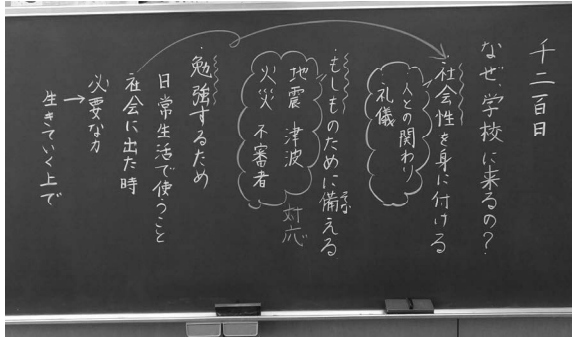 千二百日
なぜ、学校に来るの？
・社会性を身に付ける
人との関わり
礼儀
・もしものために備える
そな
地震 津波
火災 不審者
対応
・勉強するため
日常生活で使うこと
社会に出た時
必要な力
→生きていく上で